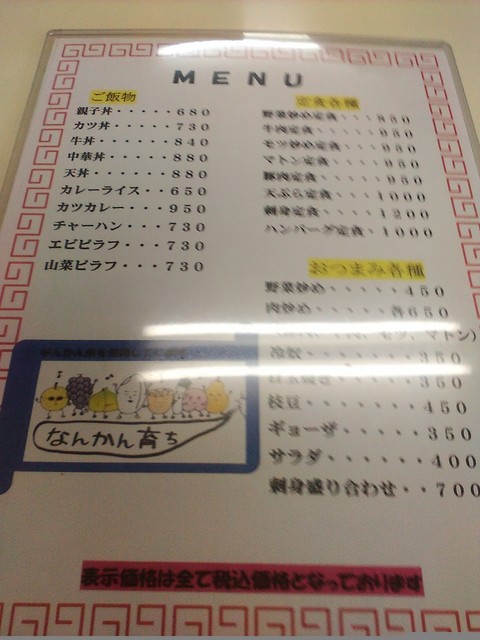 MENU
ご飯物
親子丼・・・・・680
カツ丼・・・・・730
牛丼・・・・・・840
中華丼・・・・・880
天丼・・・・・・880
カレーライス・・650
カツカレー・・・950
チャーハン・・・730
エビピラフ・・・730
山菜ピラフ・・・730
定食各種
野菜炒め定食・・・850
牛肉定食・・・・950
モツ炒め定食・・・950
マトン定食・・・・950
豚肉定食・・・・950
天ぷら定食・・・1000
刺身定食・・・・1200
ハンバーグ定食・1000
おつまみ各種
野菜炒め・・・・450
肉炒め・・・各650
モツ、マトン）
冷奴・・・・・・350
350
枝豆・・・・・・450
ギョーザ・・・・350
サラダ・・・・・400
刺身盛り合わせ・・700
なんかん育ち
表示価格は全て税込価格となっております